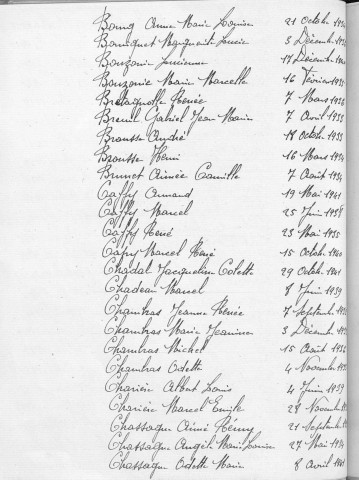 Bourg Anne Marie Louise 21 octobr
Bourguet Marguerite Lucie 3 Décemb
Bouzonie Lucienne 17 Décemb
Bouzonie Marie Marcelle 16 Février
Renée 7 Mars
Breuil Gabriel Jean Marie 7 Avril 1933
Brousse André 18 octob
Brousse Henri 16 Mars 1934
Brunet Aimée Camille 7 Août
Caffy Armand 19 Mai 1941
Caffy Marcel 25 Juin
Caffy René 23 Mai 1935
Capy Marcel René 15 octob 1940
Chadal Jacqueline Colette 29 octob 1941
Chadeau Marcel 8 Juin 1939
Chambras Jeanne Renée 7 Septemb
Chambras Marie Jeannine 3 Décemb
Chambras Michel 15 Août
Chambras Odette 4 Novemb
Albert Louis 4 Juin 1939
Marcel Emile 28 Novemb
Chassagne Aimé Rémy 21 Septemb
Chassagne Angèle Marie Louise 27 Mai
Chassagne Odette Marie 8 Avril